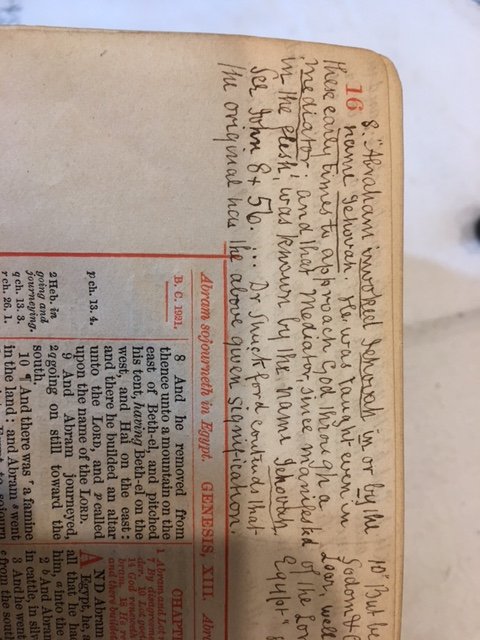 16
8. "Abraham invoked Jehovah in or by the
name Jehovah. He was taught even in
these early times to approach God through a
Mediator; and that Mediator, since manifested
in the flesh, was known by the name Jehovah.
See John 8 + 56. ... Dr Shuckford contends that
the original has the above given signification.
10" But
Sodom &
Zoar, well
of the Lor
Egypt"
Abram sojourneth in Egypt.
GENESIS, XIII.
B. C. 1921.
p ch. 13. 4.
2 Heb. in
going and
journeying.
q ch. 13. 3.
r ch. 26. 1.
8 And he removed from
thence unto a mountain on the
east of Beth-el, and pitched
his tent, having Beth-el on the
west, and Hai on the east:
and there he builded an altar
unto the LORD, and p called
upon the name of the LORD.
9 And Abram journeyed,
2 q going on still toward the
south.
10 ¶ And there was r a famine
in the land: and Abram s went
CHAPT
1 Abram and Lot
7 By disagreeme
14 God renewet
AND Abram
Egypt, he, a
all that he ha
him, a into the
2 b And Abram
in cattle, in silv
3 And he went
c from the south